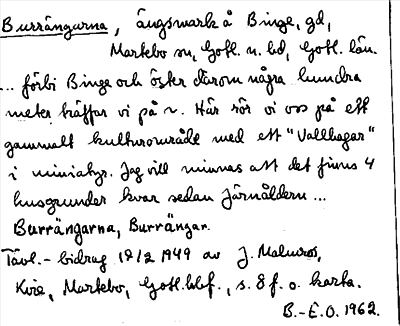 Burrängarna, ängsmark å Binge, gd,
Martebo sn, Gotl. n. hd, Gotl. län.
... förbi Binge och öster därom några hundra
meter träffar vi på r. Här rör vi oss på ett
gammalt kulturområde med ett "Vallhagar"
i miniatyr. Jag vill minnas att det finns 4
husgrunder kvar sedan järnåldern ...
Burrängarna, Burrängar.
Tävl.-bidrag 19/2 1949 av J. Malmros,
Kire, Martebo, Gotl. hlsf., s. 8 f. o. karta.
B.-E.O. 1962.